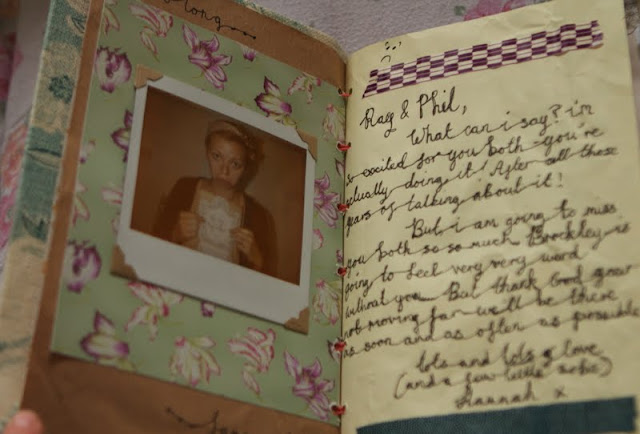 long
Ray & Phil,
What can i say? i'm
so excited for you both - you're
actually doing it! After all these
years of talking about it!
But i am going to miss
you both so so much. Brockley is
going to feel very very
without you. But thank God your
not moving far - we'll be there
as soon and as often as possible
lots and lots of love
(and a few little sobs)
Hannah x